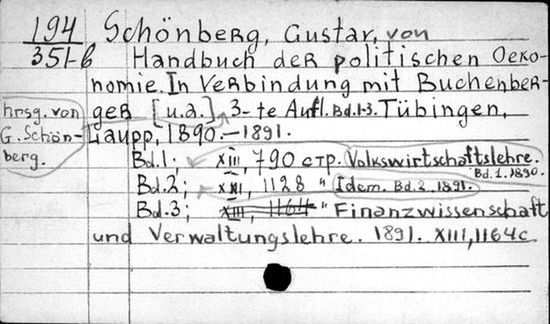 194
351-б
Schönberg, Gustav, von
Handbuch der politischen Oeko-
nomie. In Verbindung mit Buchenber-
ger [u.a.] 3-te Aufl. Bd. 1-3. Tübingen,
hrsg. von
G. Schön-
berg.
Laupp, 1890.—1891.
Bd.1; XIII, 790 стр. Volkswirtschaftslehre.
Bd. 1. 1890.
Bd.2; XXI, 1128 " Idem. Bd. 2. 1891.
Bd.3; XIII, 1164 " Finanzwissenschaft
und Verwaltungslehre. 1891. XIII, 1164 с